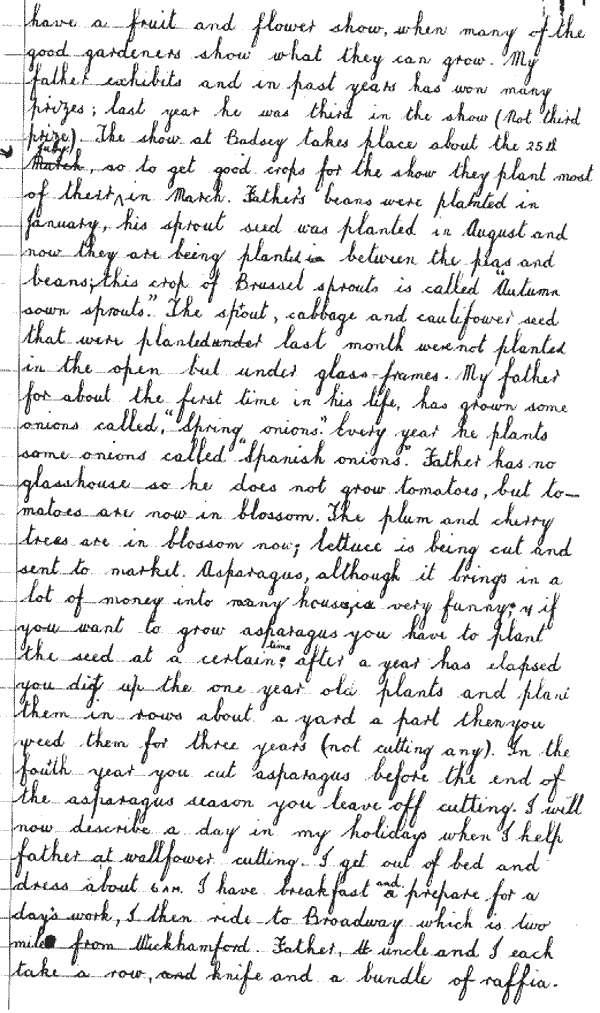 have a fruit and flower show, when many of the
good gardeners show what they can grow. My
father exhibits and in past years has won many
prizes; last year he was third in the show (Not third
prize). The show at Badsey takes place about the 25th
July
March, so to get good crops for the show they plant most
of their in March. Father's beans were planted in
January, his sprout seed was planted in August and
now they are being planted in between the peas and
beans; this crop of Brussel sprouts is called "Autumn
sown sprouts." The sprout, cabbage and cauliflower seed
that were planted under last month were not planted
in the open but under glass-frames. My father
for about the first time in his life, has grown some
onions called, "Spring onions." Every year he plants
some onions called "Spanish onions". Father has no
glasshouse so he does not grow tomatoes, but to-
matoes are now in blossom. The plum and cherry
trees are in blossom now; lettuce is being cut and
sent to market. Asparagus, although it brings in a
lot of money into many houses, is very funny; if
you want to grow asparagus you have to plant
time
the seed at a certain; after a year has elapsed
you dig up the one year old plants and plant
them in rows about a yard a part then you
weed them for three years (not cutting any). In the
fouth year you cut asparagus before the end of
the asparagus season you leave off cutting. I will
now describe a day in my holidays when I help
father at wallflower cutting. I get out of bed and
dress about 6 AM. I have breakfast and prepare for a
day's work, I then ride to Broadway which is two
mile from Wickhamford. Father, uncle and I each
take a row, and knife and a bundle of raffia.